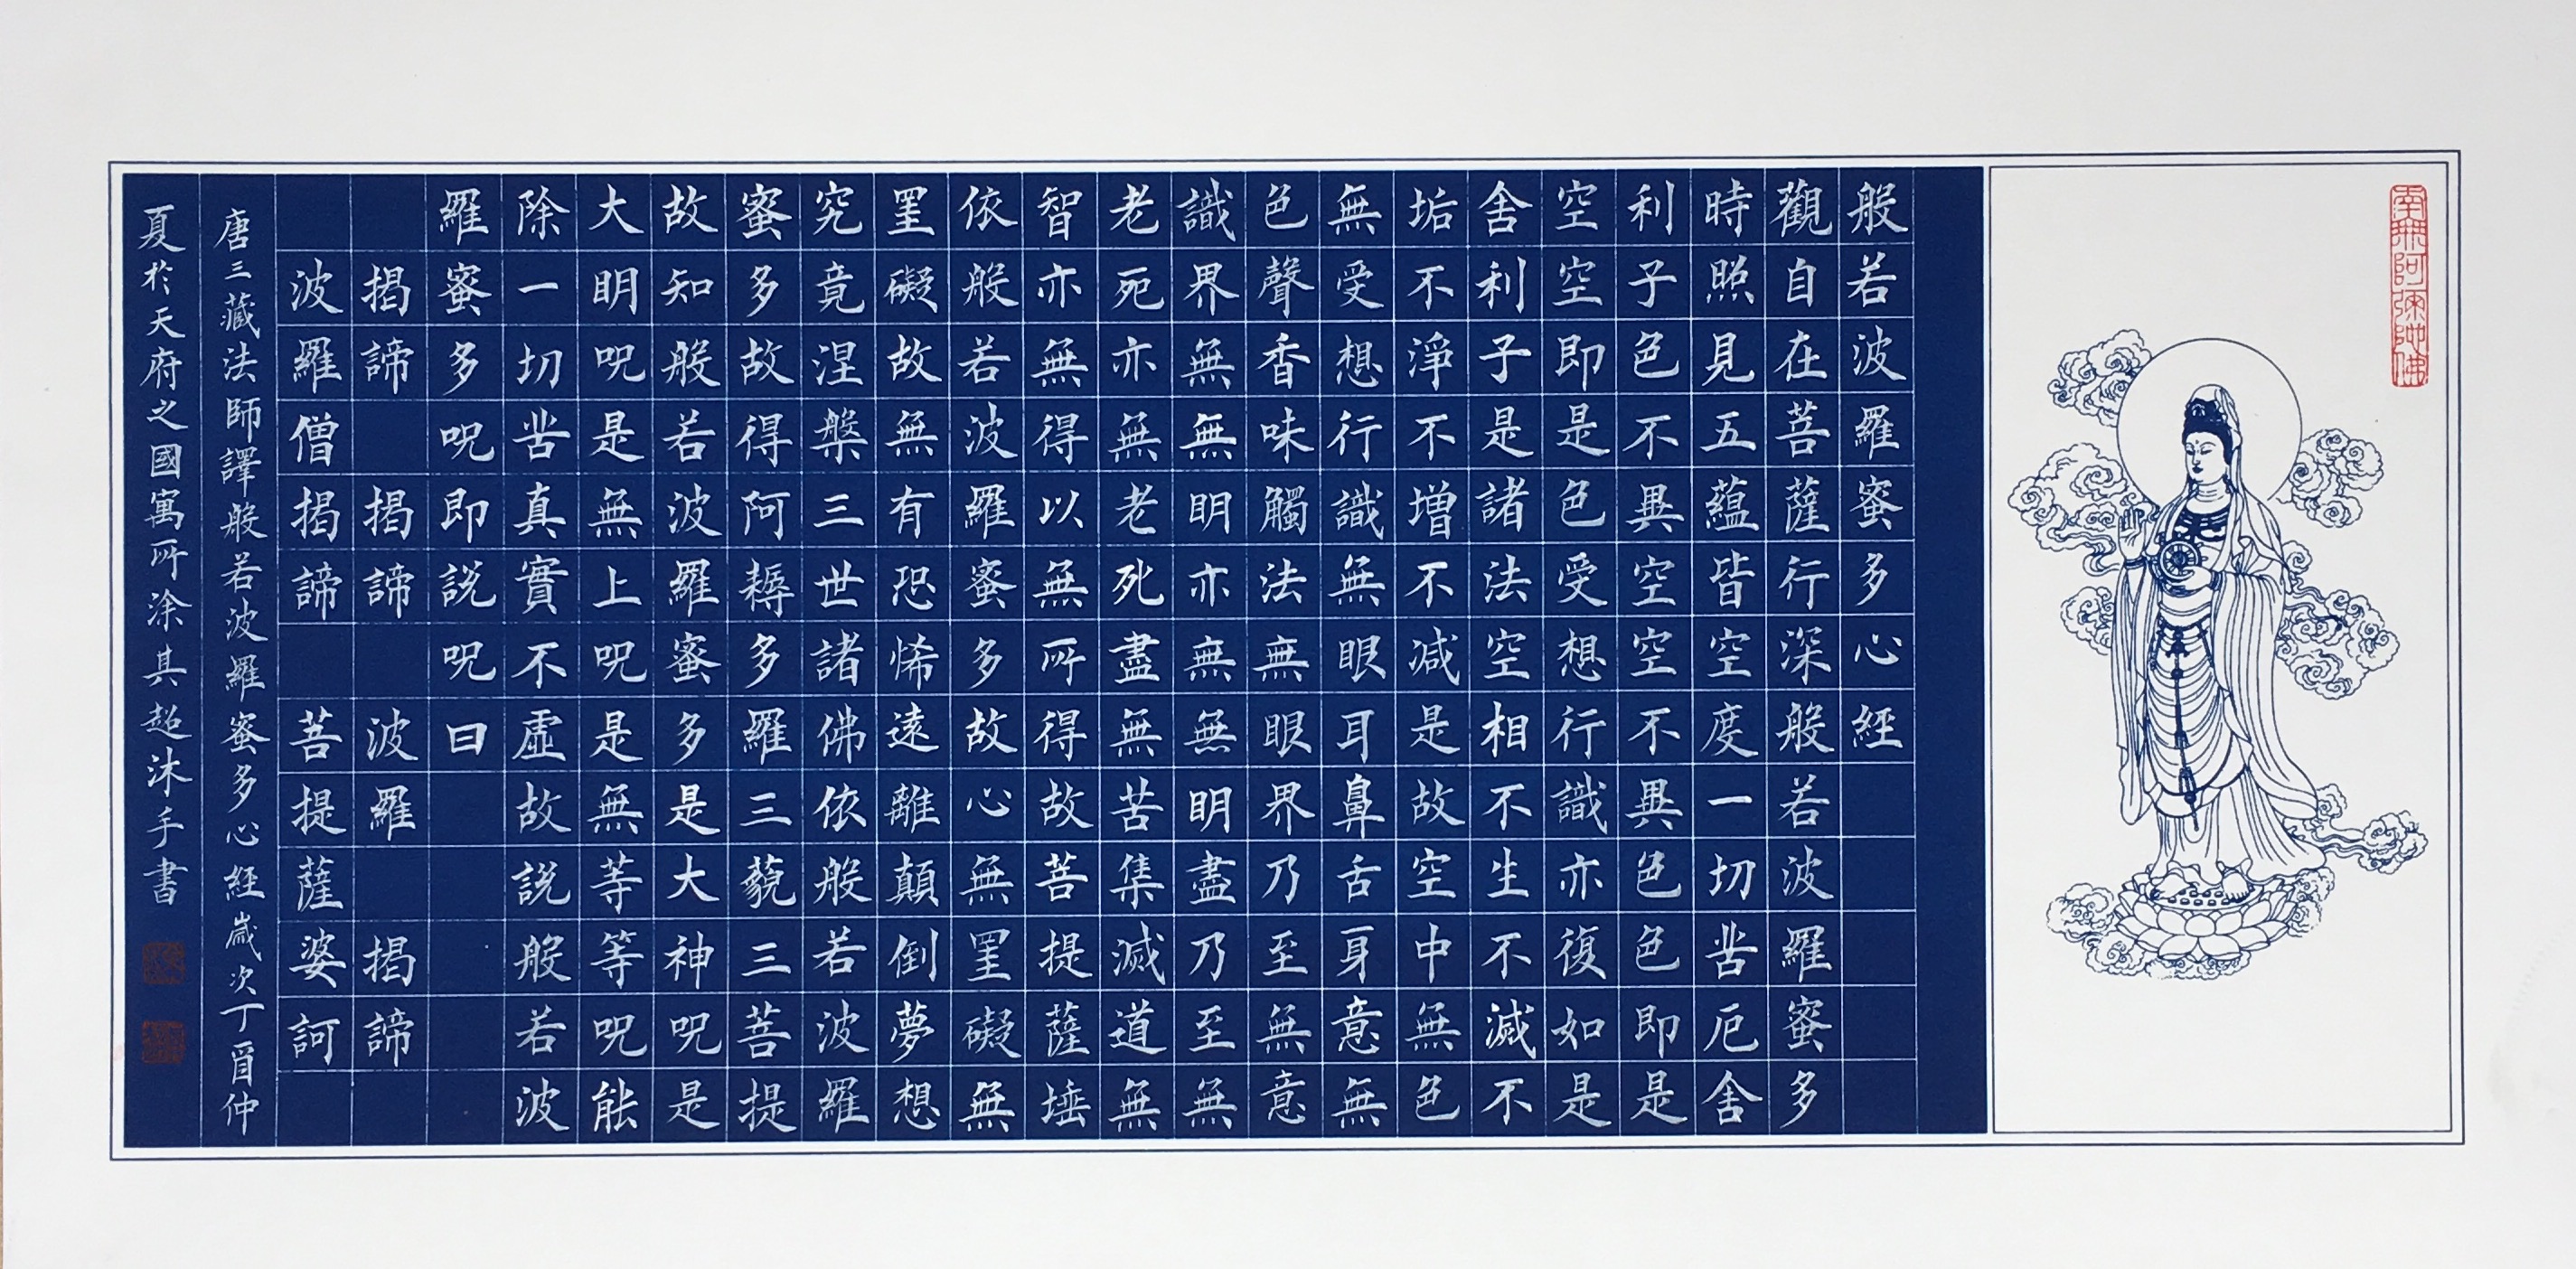 南無阿彌陀佛
般若波羅蜜多心經
觀自在菩薩行深般若波羅蜜多
時照見五蘊皆空度一切苦厄舍
利子色不異空空不異色色即是
空空即是色受想行識亦復如是
舍利子是諸法空相不生不滅不
垢不淨不增不減是故空中無色
無受想行識無眼耳鼻舌身意無
色聲香味觸法無眼界乃至無意
識界無無明亦無無明盡乃至無
老死亦無老死盡無苦集滅道無
智亦無得以無所得故菩提薩埵
依般若波羅蜜多故心無罣礙無
罣礙故無有恐悕遠離顛倒夢想
究竟涅槃三世諸佛依般若波羅
蜜多故得阿耨多羅三藐三菩提
故知般若波羅蜜多是大神呪是
大明呪是無上呪是無等等呪能
除一切苦真實不虛故說般若波
羅蜜多呪即說呪曰
揭諦 揭諦 波羅 揭諦
波羅僧揭諦 菩提薩婆訶
唐三藏法師譯般若波羅蜜多心經歲次丁酉仲
夏於天府之國寓所涂其超沐手書